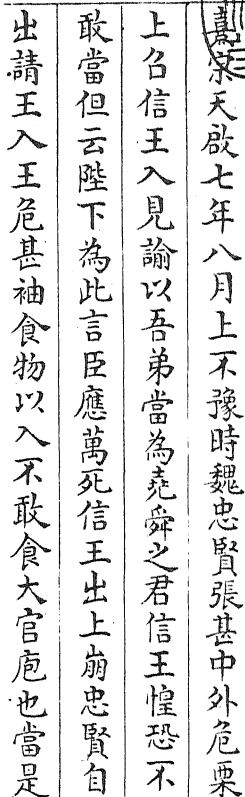 熹宗天啟七年八月上不豫時魏忠賢張甚中外危栗
上召信王入見諭以吾弟當為堯舜之君信王惶恐不
敢當但云陛下為此言臣應萬死信王出上崩忠賢自
出請王入王危甚袖食物以入不敢食大官庖也當是